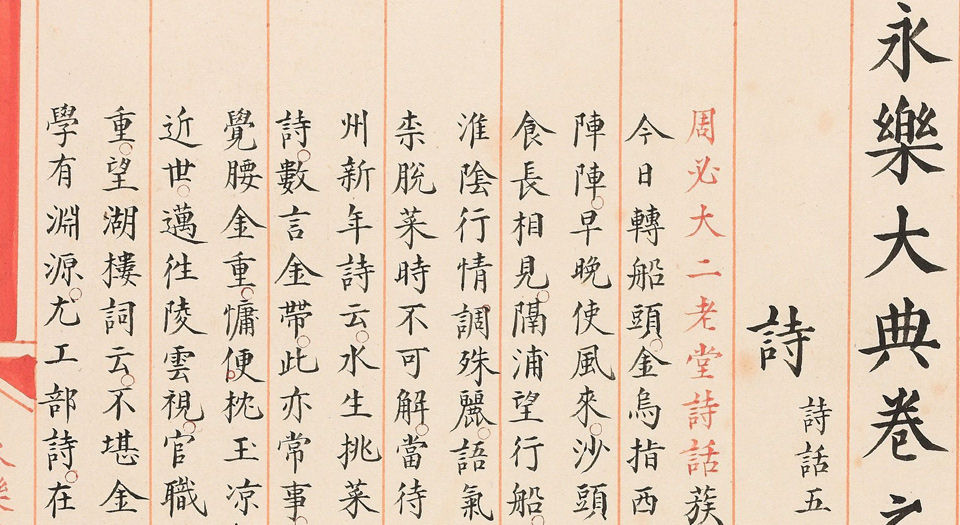 永樂大典卷之
詩 詩話五
周必大二老堂詩話蔟
今日轉船頭金烏指西
陣陣早晚使風來沙頭
食長相見隔浦望行船
淮陰行情調殊麗語氣
柰脫菜時不可解當待
州新年詩云水生挑菜
詩數言金帶此亦常事
覺腰金重慵便枕玉凉
近世邁徃陵雲視官職
重望湖樓詞云不堪金
學有淵源尤工部詩在